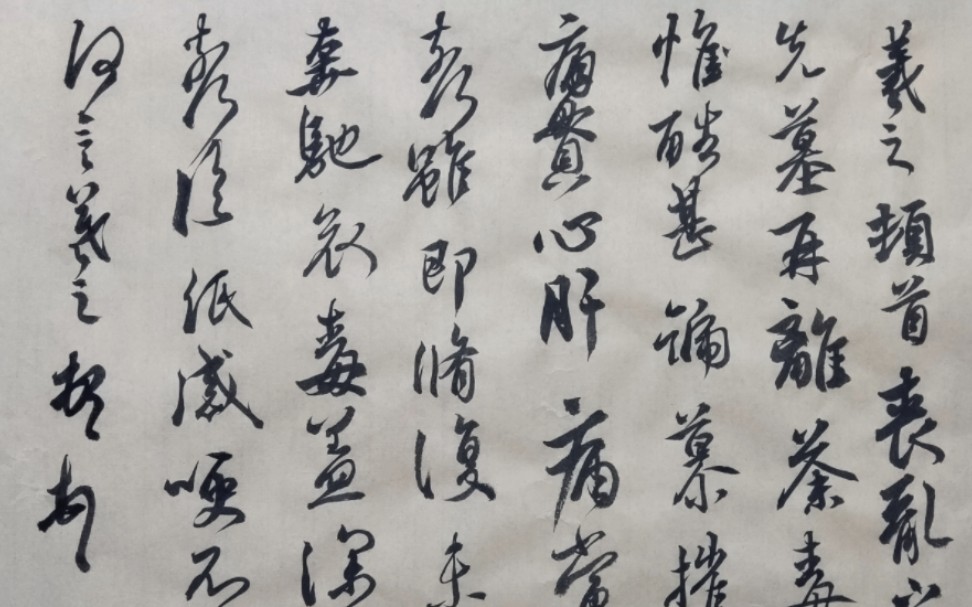 羲之頓首喪亂
先墓再離荼毒
惟酷甚號慕摧
痛貫心肝痛當
奈何雖即脩復未
奔馳哀毒益深
奈何臨紙感哽不
何言羲之頓首頓首